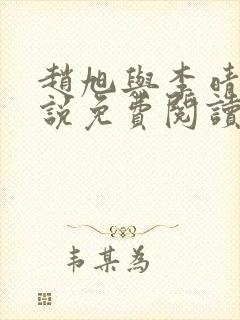 趙旭與李晴
說免費閱讀
韦某為